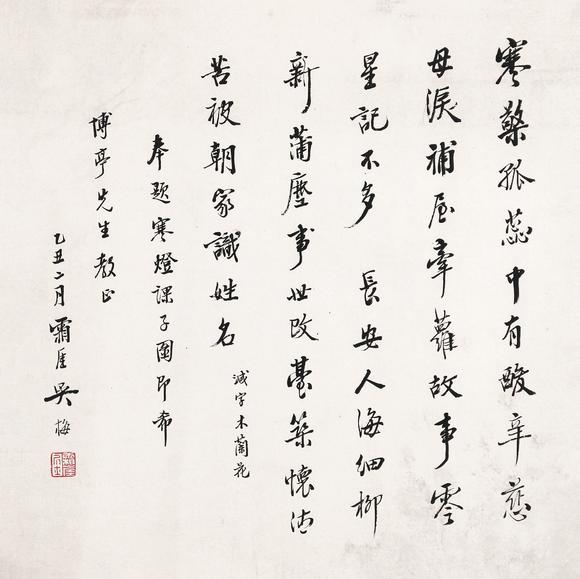 寒檠孤蕊中有酸辛慈
母淚補屋牽蘿故事零
星記不多 長安人海細柳
新蒲塵事世改臺築懷清
苦被朝家識姓名
減字木蘭花
奉題寒燈課子圖即希
博亭先生教正
乙丑二月霜厓吳梅